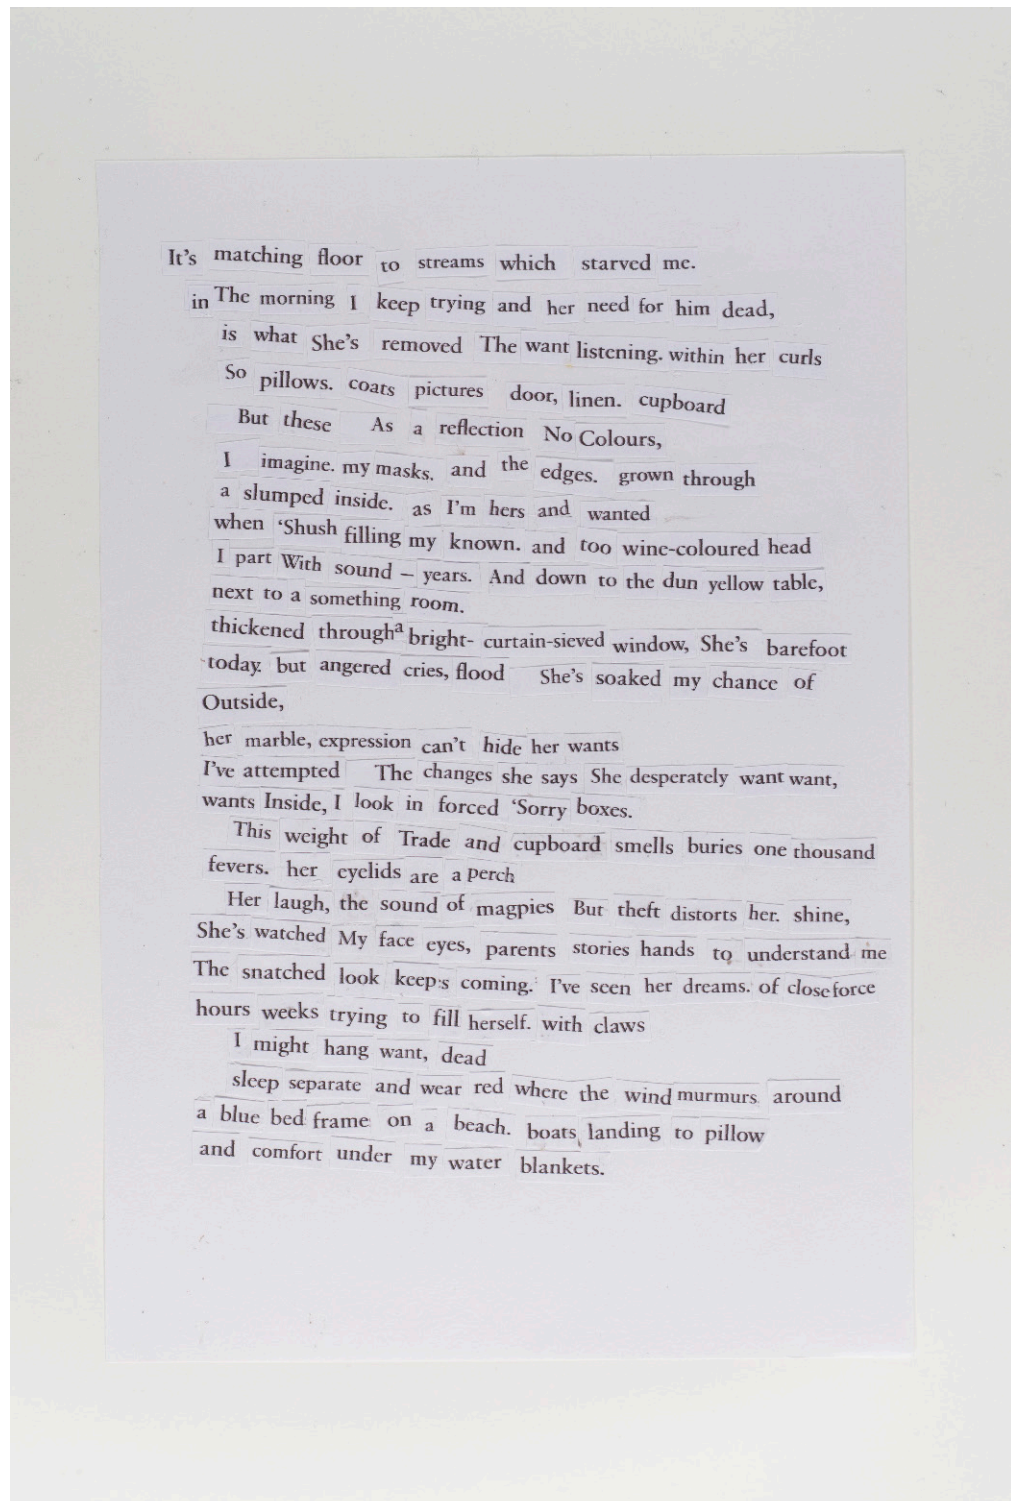 It's matching floor to streams which starved me.
in The morning I keep trying and her need for him dead,
is what She's removed The want listening. within her curls
So pillows. coats pictures door, linen. cupboard
But these As a reflection No Colours,
I imagine. my masks. and the edges. grown through
a slumped inside. as I'm hers and wanted
when ‘Shush filling my known. and too wine-coloured head
I part With sound – years. And down to the dun yellow table,
next to a something room.
thickened through a bright- curtain-sieved window, She's barefoot
today. but angered cries, flood She's soaked my chance of
Outside,
her marble, expression can't hide her wants
I've attempted The changes she says She desperately want want,
wants Inside, I look in forced ‘Sorry boxes.
This weight of Trade and cupboard smells buries one thousand
fevers. her eyelids are a perch
Her laugh, the sound of magpies But theft distorts her. shine,
She's watched My face eyes, parents stories hands to understand me
The snatched look keep's coming. I've seen her dreams. of close force
hours weeks trying to fill herself. with claws
I might hang want, dead
sleep separate and wear red where the wind murmurs around
a blue bed frame on a beach. boats landing to pillow
and comfort under my water blankets.